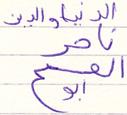 الدنيا والدين
ناصر
الفتح
ابو